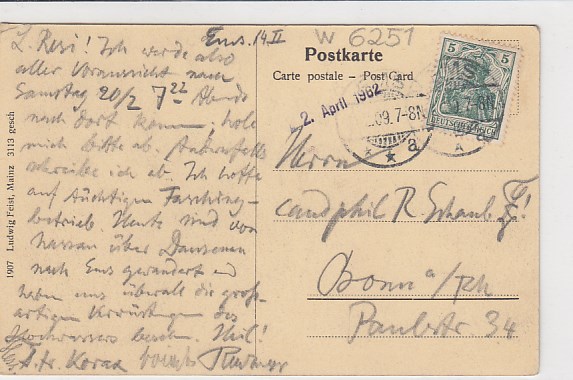 Ems. 14.II
L. Resi! Ich werde also
aller Voraussicht nach
Samstag 20/2 7 22 Abends
nach dort kommen, hole
mich bitte ab. Andernfalls
schreibe ich ab. Ich hoffe
auf tüchtigen Fasching-
betrieb. Heute sind von
Nassau über Dausenau
nach Ems gewandert und
haben uns überall die groß-
artigen des
Hochwassers besehn. Heil!
1907 Ludwig Feist, Mainz 3113 gesch
W 6251
Postkarte
Carte postale – Post Card
2. April 1962
5
DEUTSCHES REICH
EMS
.09.7-8N.
* * a
Herrn
cand phil R
Bonn a/Rh
Paulstr. 34